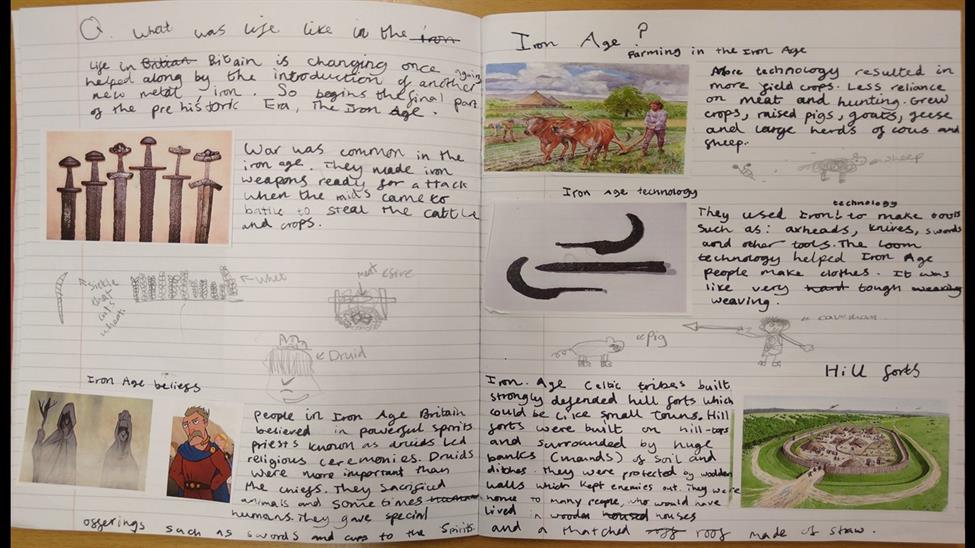 Q. What was life like in the iron
Life in Britain Britain is changing once again,
helped along by the introduction of another
new metal iron. So begins the final part
of the pre historic Era, The Iron Age.
War was common in the
iron age. They made iron
weapons ready for attack
when the came to
battle to steal the cattle
and crops.
sickle that cuts wheat
Druid
Iron Age beliefs
People in Iron Age Britain
believed in powerful spirits
priests known as druids led
religious ceremonies. Druids
were more important than
the chiefs. They sacrificed
animals and some times
humans. They gave special
offerings such as swords and cups to the spirits.
Iron Age?
Farming in the Iron Age
More technology resulted in
more field crops. Less reliance
on meat and hunting. Grew
crops, raised pigs, goats, geese
and large herds of cows and
sheep.
sheep
Iron Age technology
technology
They used Iron to make tools
such as: axheads, knives, swords
and other tools. The loom
technology helped Iron Age
people make clothes. It was
like very hard tough weaving
weaving.
caveman
Pig
Hill forts
Iron. Age Celtic tribes built
strongly defended hill forts which
could be like small towns. Hill
forts were built on hill-tops
and surrounded by huge
banks (mands) of soil and
ditches. They were protected by wodden
walls which kept enemies out. They were
home to many people, who would have
lived in wooden housed houses
and a thatched roff roof made of straw.